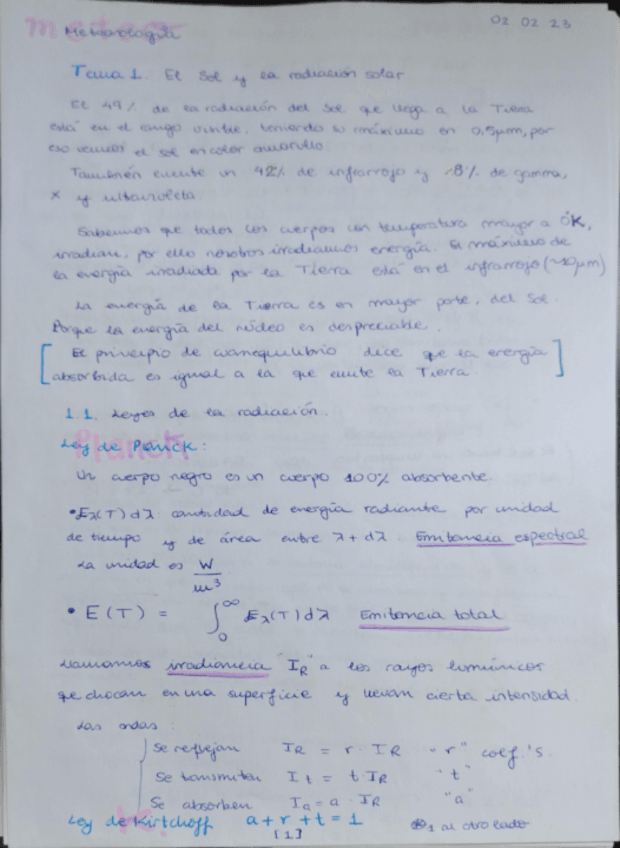 02 02 23
meteo
Meteorología
Tema 1. El Sol y la radiación solar
El 49% de la radiación del Sol que llega a la Tierra
está en el rango visible, teniendo su máximo en 0,5μm, por
eso vemos el sol en color amarillo.
También emite un 42% de infrarrojo y 8% de gamma,
X y ultravioleta.
Sabemos que todos los cuerpos con temperatura mayor a 0K,
irradian, por ello nosotros irradiamos energía. El máximo de
la energía irradiada por la Tierra está en el infrarrojo (~10μm)
La energía de la Tierra es en mayor parte, del Sol.
Porque la energía del núcleo es despreciable.
[El principio de cuasiequilibrio dice que la energía
absorbida es igual a la que emite la Tierra.]
1.1. Leyes de la radiación.
Planck
Ley de Planck:
Un cuerpo negro es un cuerpo 100% absorbente.
• Eλ(T) dλ cantidad de energía radiante por unidad
de tiempo y de área entre λ + dλ. Emitancia espectral
La unidad es W/m³
• E(T) = ∫₀^∞ Eλ(T)dλ Emitancia total
Llamamos irradiancia "I_R" a los rayos lumínicos
que chocan en una superficie y llevan cierta intensidad.
Las ondas:
Se reflejan I_R = r · I_R "r" coef.'s.
Se transmiten I_t = t · I_R "t"
Se absorben I_a = a · I_R "a"
Ley de Kirtchoff a + r + t = 1 1 al otro lado
[1]